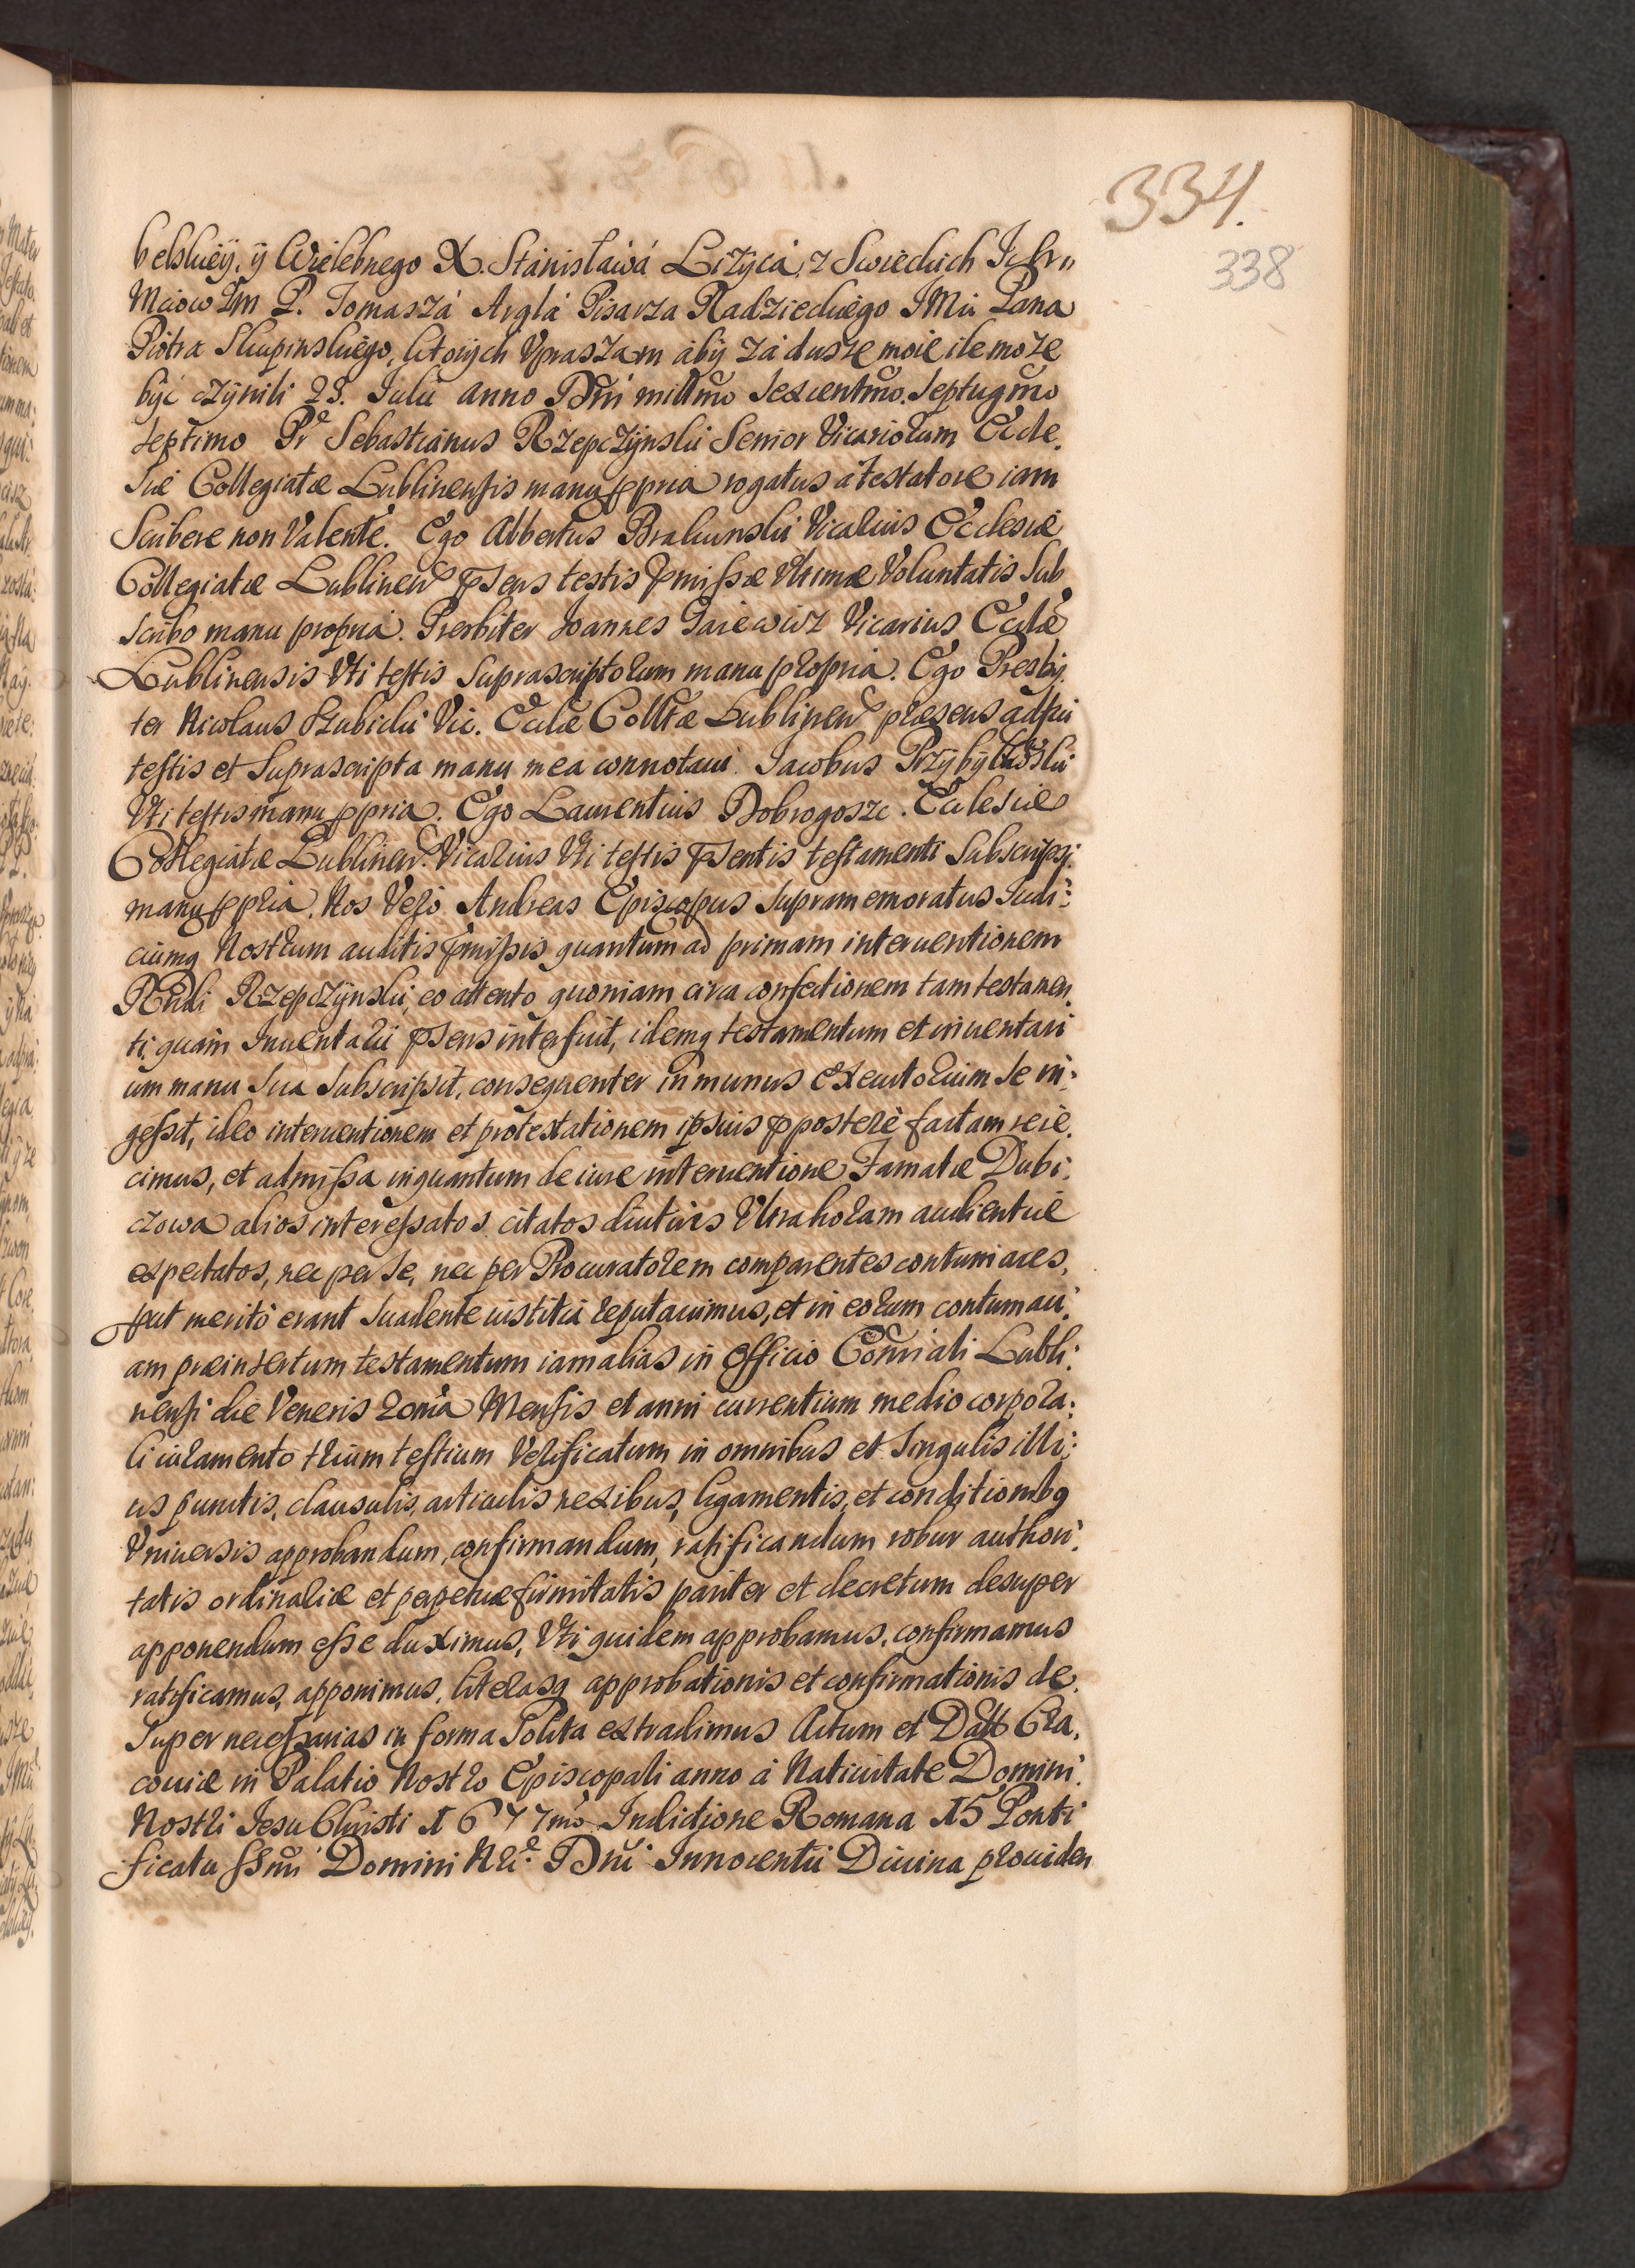 334.
338
belskiey, ÿ Wielebnego X. Stanisława Lizyca, z Swieckich Ichm
Mciow Im P. Tomasza Argla Pisarza Radzieckiego IMci Pana
Piotra Skupinskiego, ktorÿch Vpraszam abÿ za dusze moie ile może
być czÿnili 28. Julii anno Dñi millmo sexcentmo. Septugmo
septimo Pr Sebastianus Rzepczÿnski Senior Vicariorum Eccle.
siæ Collegiatæ Lublinensis manu ppria rogatus a testatore iam
Scribere non Valente. Ego Albertus Brakunski Vicarius Ecclesiæ
Collegiatæ Lublinen psens testis pmissæ Vltimæ Voluntatis Sub
scribo manu propria. Presbiter Joannes Gaiewicz Vicarius Ecclæ
Lublinensis Vti testis Suprascriptorum manu propria. Ego Presbÿ.
ter Nicolaus Szubicki Vic. Ecclæ Colltæ Lublinen præsens adfui
testis et Suprascripta manu mea connotaui. Jacobus Przybyłkoski
Vti testis manu ppria. Ego Laurentius Dobrogoszc. Ecclesiæ
Collegiatæ Lublinen. Vicarius Vti testis psentis testamenti Subscripsi.
manu ppria. Nos Vero Andreas Episcopus supramemoratus Iudi:
ciumq Nostrum auditis pmissis quantum ad primam interuentionem
Rndi Rzepczÿnski, eo attento quoniam circa confectionem tam testamen.
ti quam Inuentarii psens interfuit, idemq testamentum et inuentari
um manu sua Subscripsit, consequenter in munus executorium se in:
gessit, ideo interuentionem et protestationem ipsius ppostere factam reie.
cimus, et admissa inquantum de iure interuentione Famatæ Dubi:
czowa alios interessatos citatos diutius Vltra horam audientiæ
expectatos, nec per se, nec per Procuratorem comparentes contumaces,
put merito erant suadente iustitia reputauimus, et in eorum contumaci:
am præinsertum testamentum iam alias in Officio Consiali Lubli:
nensi die Veneris 2oma Mensis et anni currentium medio corpora:
li iuramento trium testium Verificatum in omnibus et Singulis illi:
us punctis, clausulis, articulis nexibus, ligamentis, et conditionibq
Vniuersis approbandum, confirmandum, ratificandum robur authori:
tatis ordinariæ et perpetuæ firmitatis pariter et decretum desuper
apponendum esse duximus, Vti quidem approbamus, confirmamus
ratificamus, apponimus, literasq approbationis et confirmationis de.
super necessarias in forma Solita extradimus Actum et Datt Cra.
couiæ in Palatio Nostro Episcopali anno a Natiuitate Domini.
Nostri Jesu Christi 1677mo Indictione Romana 15 Ponti
ficatu SSmi Domini Nri. Dñi Innocentii Diuina prouiden